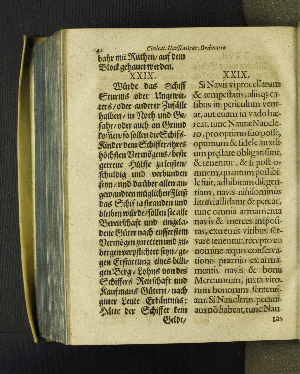 42
Civitat. Hanseaticar. Ordinatio
bahr mit Ruthen / auf dem
Block gehauet werden.
XXIX.
Würde das Schiff
Sturms oder Ungewit-
ters / oder anderer Zufälle
halben / in Noth und Ge-
fahr / oder auch an Grund
kommen / so sollen die Schiffs-
Kinder dem Schiffer ihres
höchsten Vermögens / beste
getreue Hülffe zu leisten /
schuldig und verbunden
seyn / und da über allen an-
gewandten möglichen Fleiß
das Schif zu stranden und
bleiben würde / sollen sie alle
Bereitschaft und eingela-
dene Güter nach äusserstem
Vermögen zu retten und zu
bergen verpflichtet seyn / ge-
gen Erstattung eines billi-
gen Berg-Lohns von des
Schiffers Reitschaft und
Kaufmans Gütern / nach
guter Leute Erkäntnüs:
Hätte der Schiffer kein
Geldt /
XXIX.
Si Navis vi procellarum
& tempestatis, aliisq; ca-
sibus in periculum veni-
at, aut etiam in vado hæ-
reat, tunc Nautæ Naucle-
ro, pro optimo suo posse,
optimam & fidele auxili-
um præstare obligati sint,
& teneantur, & si post o-
mnem, quantum possibi-
le fuit, adhibitam diligen-
tiam, navis nihilominus
littori allidatur & pereat,
tunc omnia armamenta
navis & merces imposi-
tas, extremis viribus ser-
vare tenentur, recepto eo
nomine æquo conserva-
tionis præmio ex arma-
mentis navis & bonis
Mercatorum, juxta viro-
rum bonorum senten-
tiam. Si Nauclerus pecuni-
am nō habeat, tunc Nau-
tas